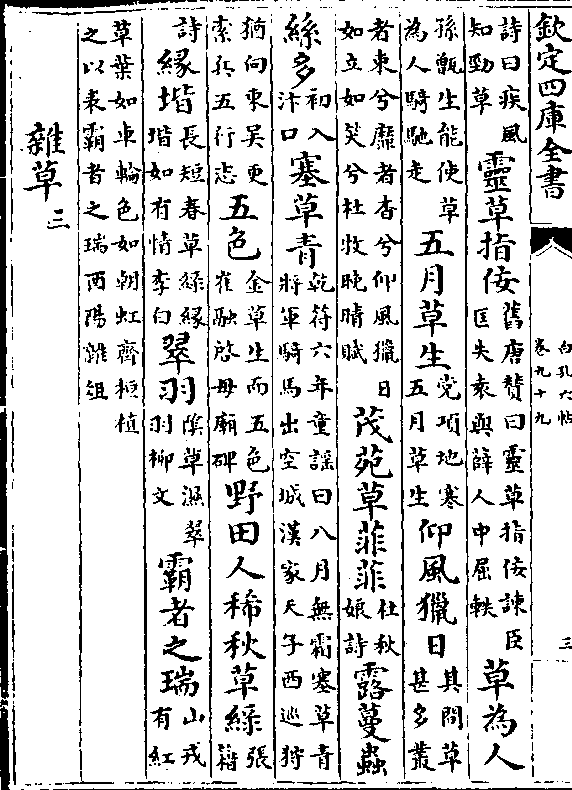 欽定四庫全書
白孔六帖
卷九十九
三
詩曰疾風
知勁草
靈草指佞
舊唐贊曰靈草指佞諫臣
匡失袁與薛人中屈軼
草為人
孫甑生能使草
為人騎馳走
五月草生
党項地寒
五月草生
仰風獵日
其間草
甚多叢
者束兮靡者杳兮仰風獵日
如立如笑兮杜牧晚晴賦
茂苑草菲菲
杜秋
娘詩
露蔓蟲
絲多
初入
汴口
塞草青
乾符六年童謠曰八月無霜塞草青
將軍騎馬出空城漢家天子西巡狩
猶向東吳更
索兵五行志
五色
金草生而五色
崔融啓母廟碑
野田人稀秋草綠
張
籍
詩
緣堦
長短春草綠緣
堦如有情李白
翠羽
隂草濕翠
羽柳文
霸者之瑞
山戎
有紅
草葉如車輪色如朝虹齊桓植
之以表霸者之瑞酉陽雜俎
雜草三